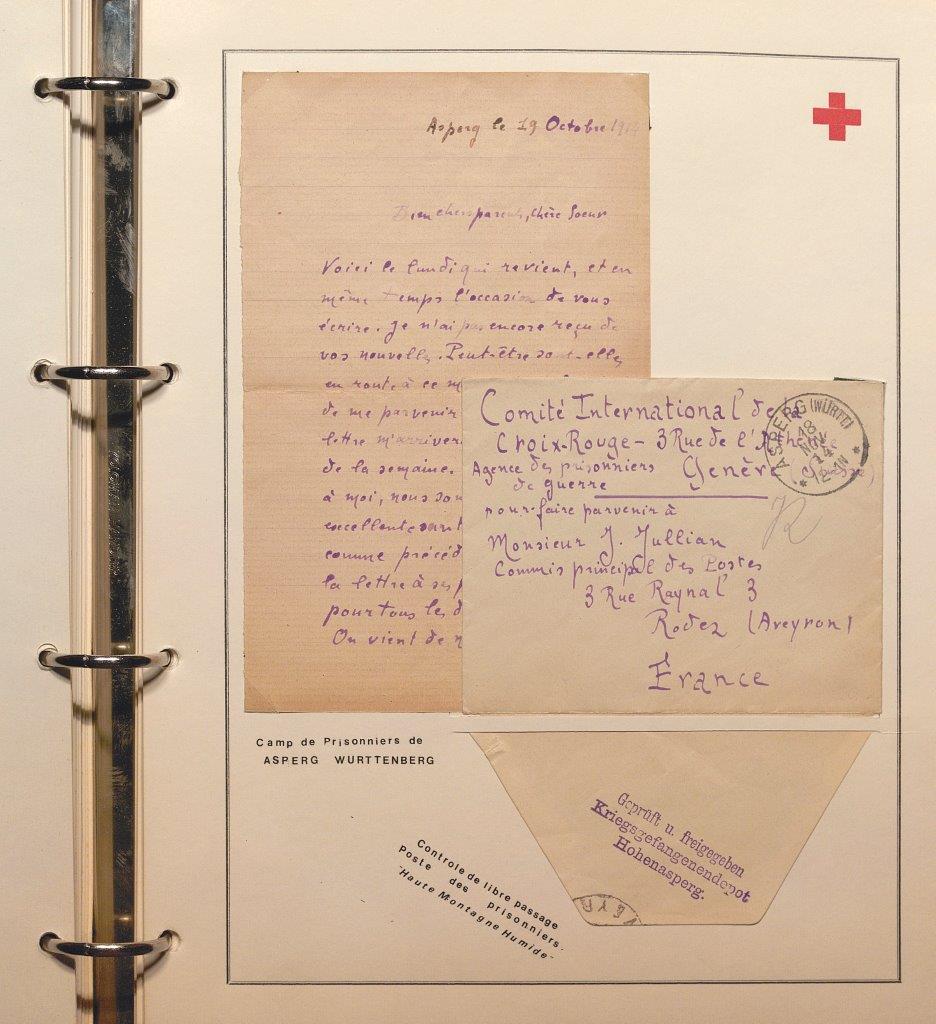 Asperg le 19 Octobre 191
Bien chers parents, chère Soeur
Voici le lundi qui revient, et en
même temps l'occasion de vous
écrire. Je n'ai pas encore reçu de
vos nouvelles. Peut-être sont-elles
en route à ce m
de me parvenir
lettre m'arriver
de la semaine.
à moi, nous som
excellente sant
comme précéd
la lettre à ses p
pour tous les d
On vient de n
Comité International de la
Croix-Rouge - 3 Rue de l'Athénée
Agence des prisonniers Genève (Suisse)
de guerre
pour faire parvenir à
Monsieur J. Jullian
Commis principal des Postes
3 Rue Raynal 3
Rodez (Aveyron)
France
ASPERG (WÜRTT)
18
NOV
14
12-1N
Camp de Prisonniers de
ASPERG WURTTENBERG
Geprüft u. freigegeben
Kriegsgefangenendepot
Hohenasperg.
Controle de libre passage
Poste des prisonniers.
"Haute Montagne Humide"